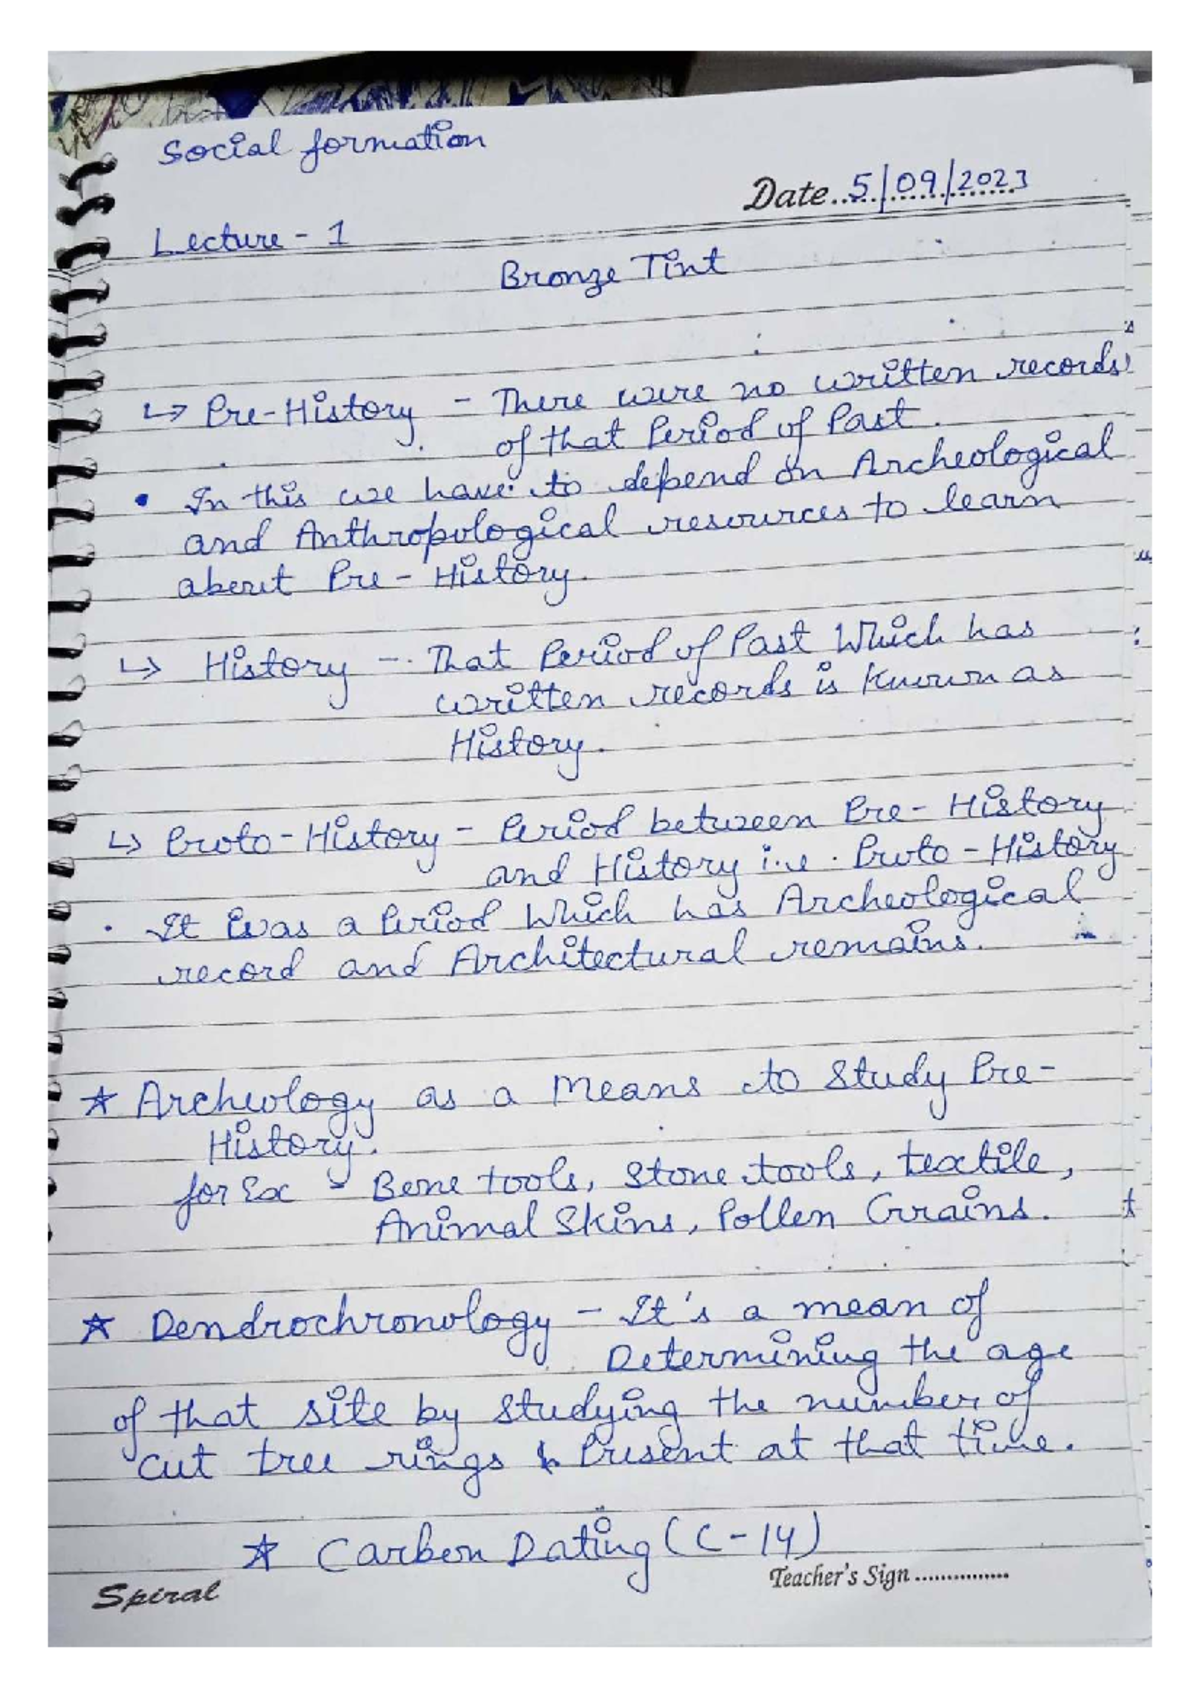 Social formation
Date..5/09/2023
Lecture - 1
Bronze Tint
↳ Pre-History - There were no written records
of that Period of Past.
• In this we have to depend on Archeological
and Anthropological resources to learn
about Pre - History.
↳ History - That Period of Past Which has
written records is known as
History.
↳ Proto-History - Period between Pre- History
and History i.e. Proto - History
• It was a Period Which has Archeological
record and Architectural remains.
☆ Archeology as a Means to Study Pre-
History.
for Ex - Bone tools, Stone tools, textile,
Animal Skins, Pollen Grains.
☆ Dendrochronology - It's a mean of
Determining the age
of that site by studying the number of
cut tree rings Present at that time.
☆ Carbon Dating (C-14)
Spiral
Teacher's Sign ...............